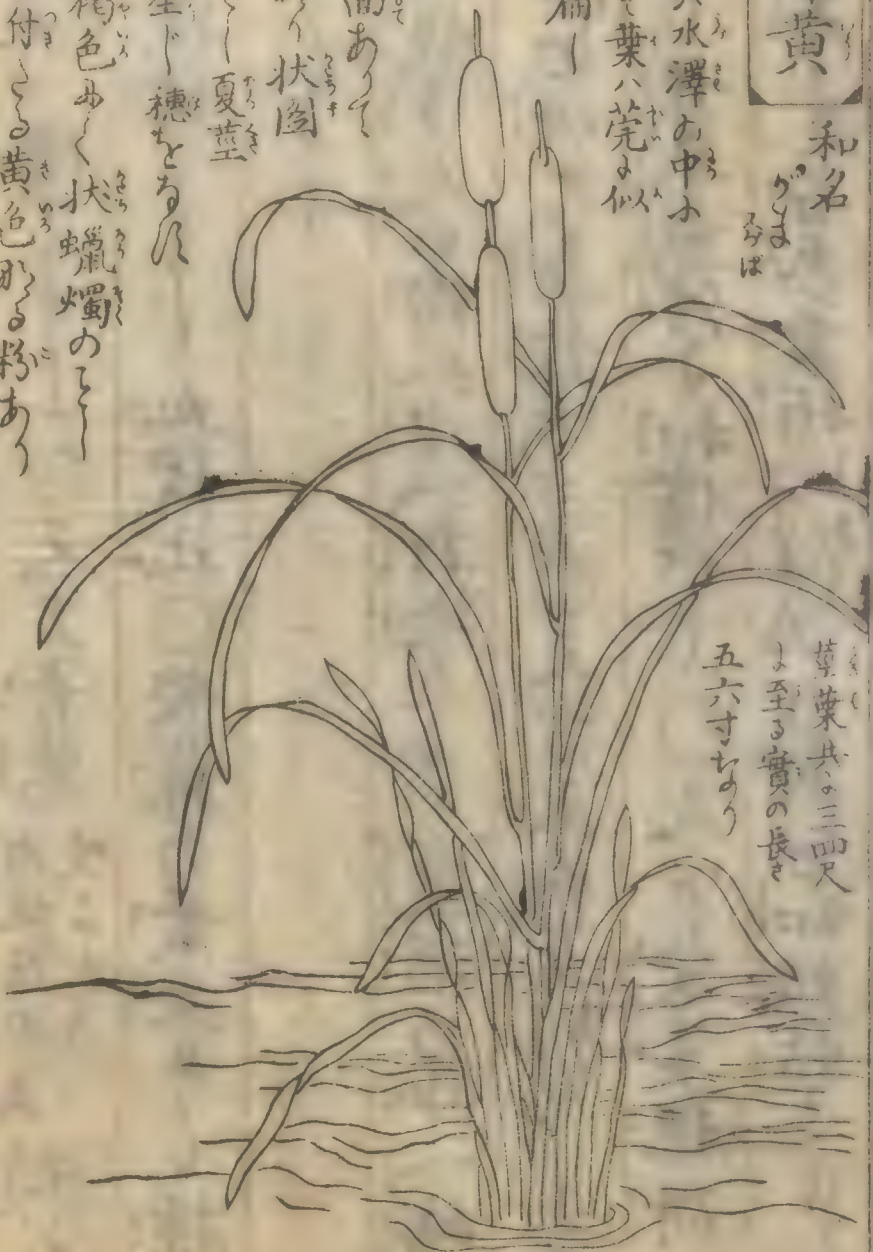 黄
和名
がま
みずば
水澤の中に
葉ハ莞に似
偏し
間ありて
状圓
し夏莖
生じ穂をなす
褐色にして状蠟燭のごとし
付たる黄色なる粉あり
莖葉共に三四尺
に至る實の長さ
五六寸なり